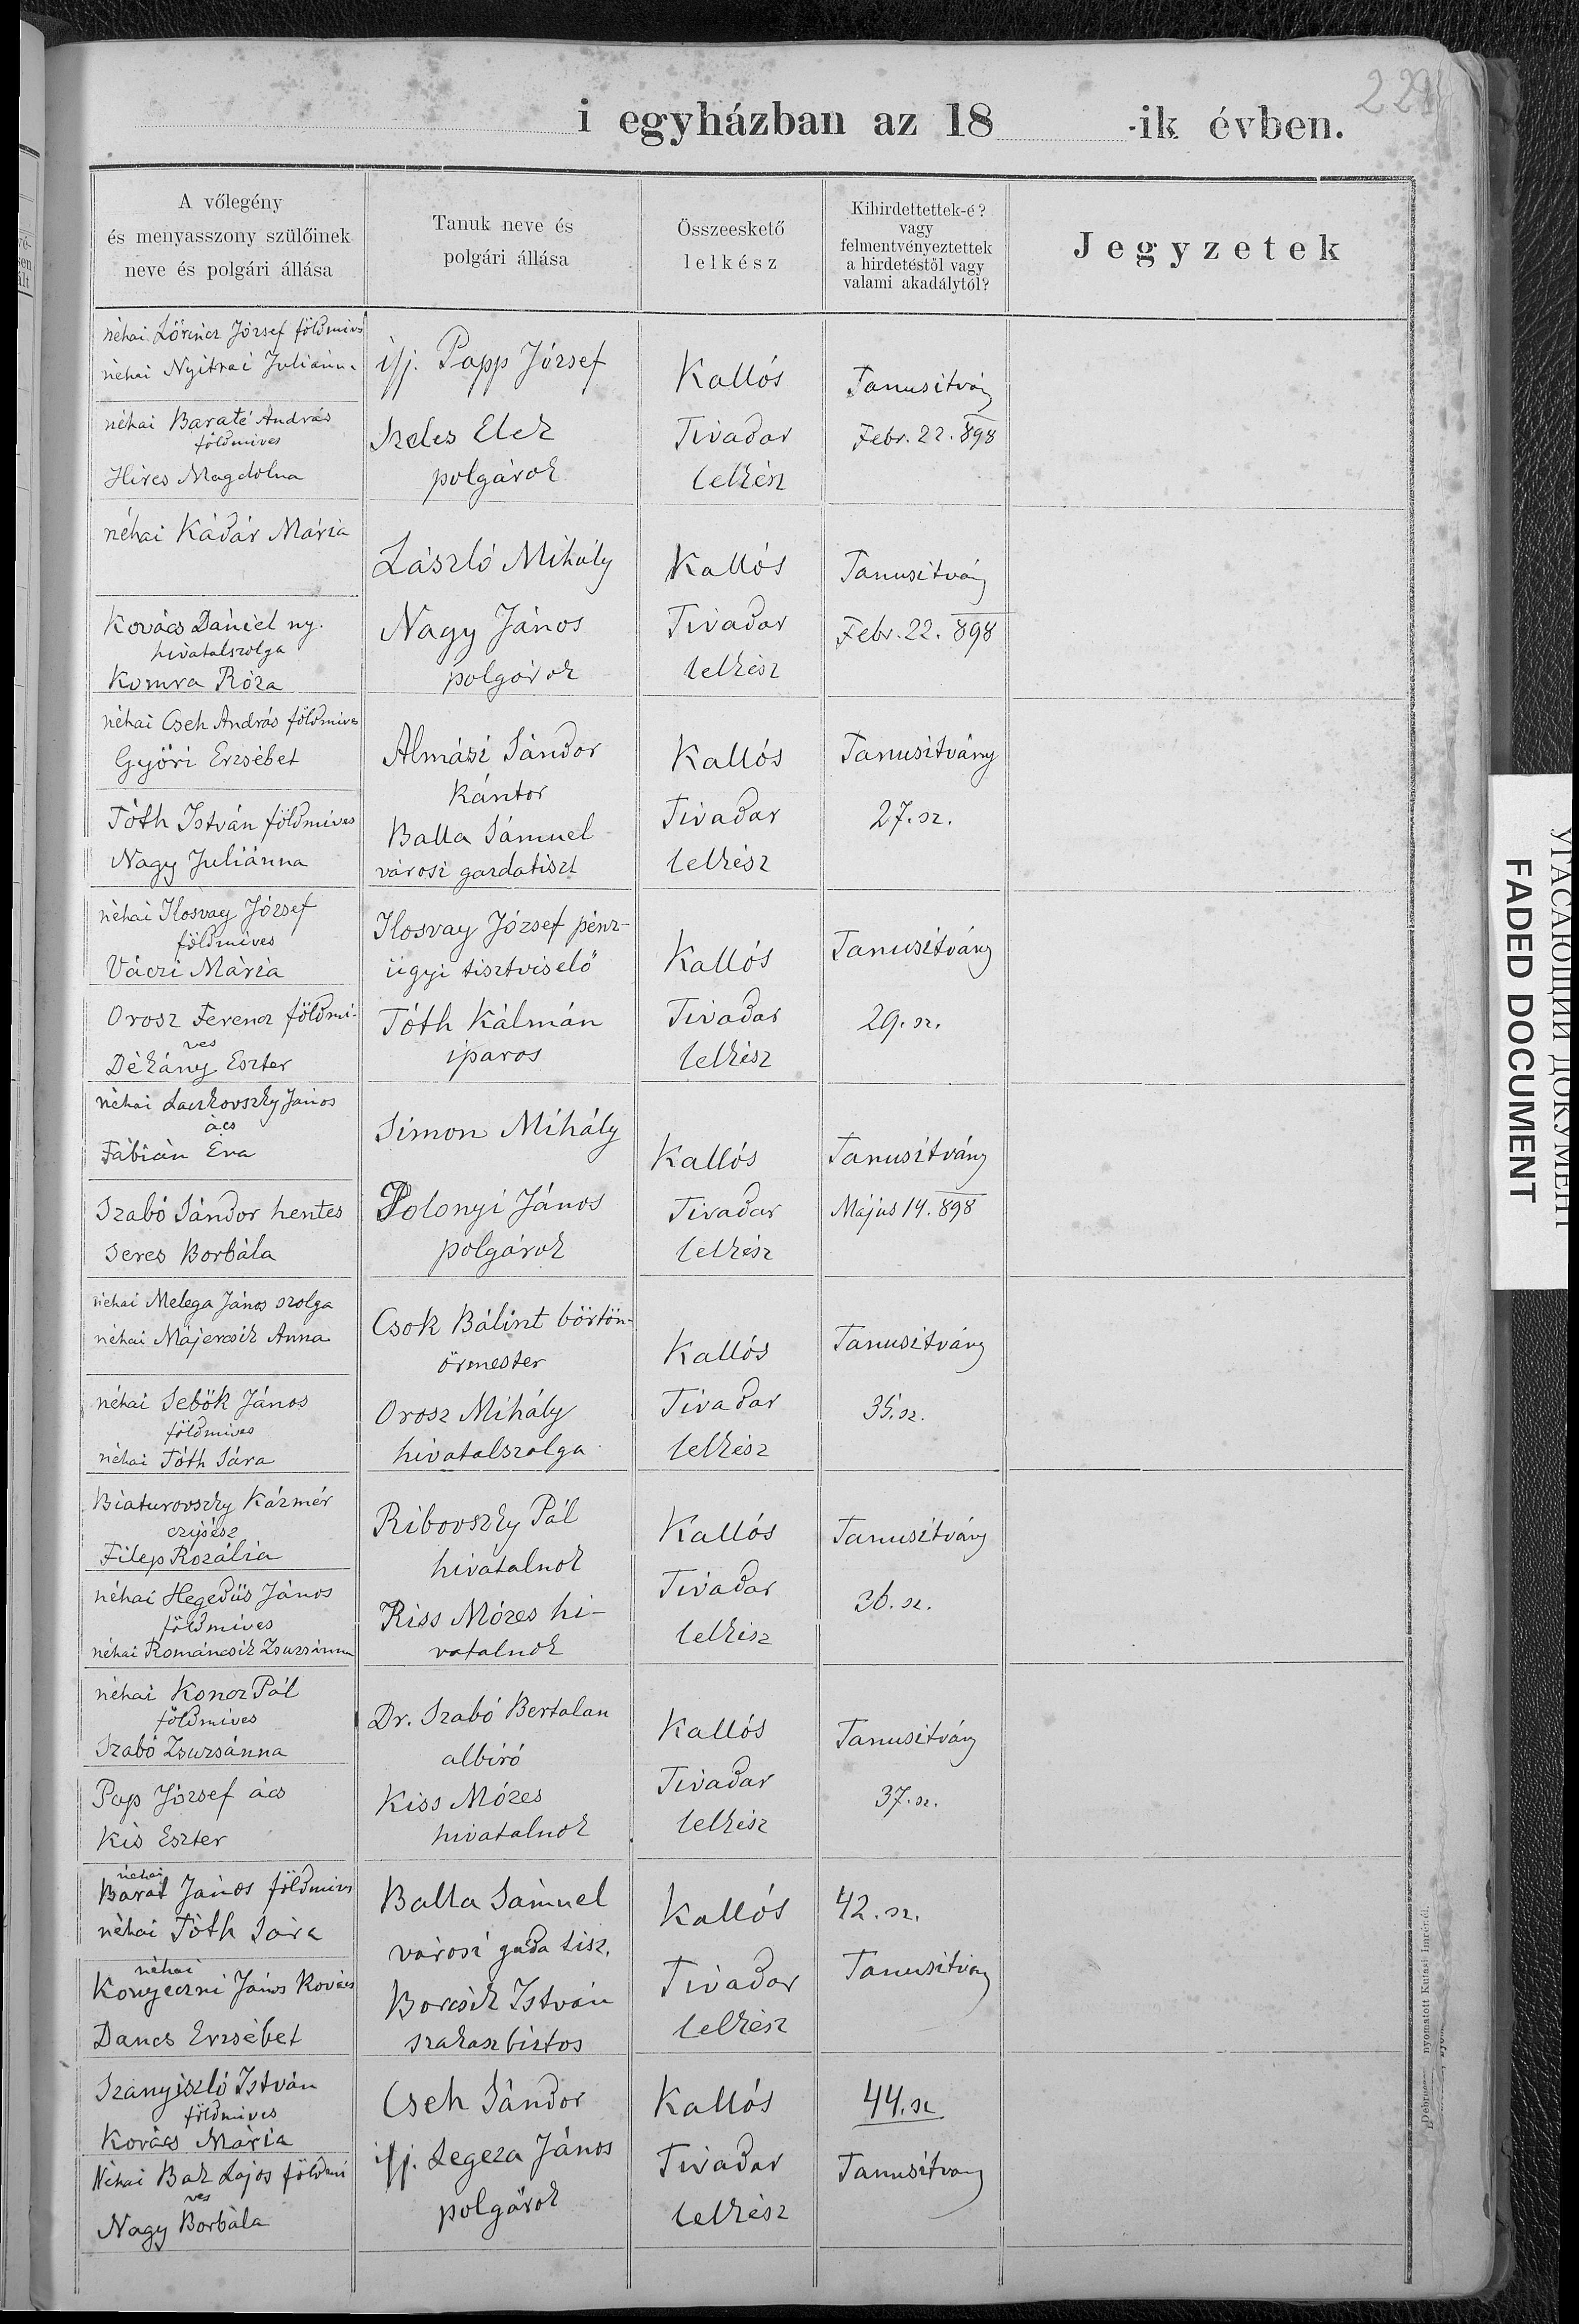 229
i egyházban az 18 -ik évben.
A vőlegény
és menyasszony szülőinek
neve és polgári állása
Tanuk neve és
polgári állása
Összeeskető
lelkész
Kihirdettettek-é?
vagy
felmentvényeztettek
a hirdetéstől vagy
valami akadálytól?
Jegyzetek
néhai Lőrincz József földmives
néhai Nyitrai Juliánna
néhai Baráté András
földmives
Hires Magdolna
ifj. Papp József
Szeles Elek
polgárok
Kallós
Tivadar
lelkész
Tanusitvány
Febr. 22. 898
néhai Kádár Mária
Kovács Dániel ny.
hivatalszolga
Komra Róza
László Mihály
Nagy János
polgárok
Kallós
Tivadar
lelkész
Tanusitvány
Febr. 22. 898
néhai Cseh András földmives
Győri Erzsébet
Tóth István földmives
Nagy Juliánna
Almási Sándor
kántor
Balla Sámuel
városi gazdatiszt
Kallós
Tivadar
lelkész
Tanusitvány
27. sz.
néhai Ilosvay József
földmives
Váczi Mária
Orosz Ferencz földmi-
ves
Dékány Eszter
Ilosvay József pénz-
ügyi tisztviselő
Tóth Kálmán
iparos
Kallós
Tivadar
lelkész
Tanusitvány
29. sz.
néhai Laczkovszky János
ács
Fábián Éva
Szabó Sándor hentes
Seres Borbála
Simon Mihály
Polonyi János
polgárok
Kallós
Tivadar
lelkész
Tanusitvány
Május 14. 898
néhai Melega János szolga
néhai Májercsik Anna
néhai Sebők János
földmives
néhai Tóth Sára
Csok Bálint börtön-
őrmester
Orosz Mihály
hivatalszolga
Kallós
Tivadar
lelkész
Tanusitvány
35. sz.
Biaturovszky Kázmér
czipész
Filep Rozália
néhai Hegedüs János
földmives
néhai Románcsik Zsuzsánna
Ribovszky Pál
hivatalnok
Kiss Mózes hi-
vatalnok
Kallós
Tivadar
lelkész
Tanusitvány
36. sz.
néhai Koncz Pál
földmives
Szabó Zsuzsánna
Pap József ács
Kis Eszter
Dr. Szabó Bertalan
albiró
Kiss Mózes
hivatalnok
Kallós
Tivadar
lelkész
Tanusitvány
37. sz.
néhai
Barát János földmives
néhai Tóth Sára
néhai
Konyeczni János Kovács
Dancs Erzsébet
Balla Sámuel
városi gazda tisz.
Borcsik István
szakaszbiztos
Kallós
Tivadar
lelkész
42. sz.
Tanusitvány
Szanyiszló István
földmives
Kovács Mária
Néhai Bak Lajos földmi
ves
Nagy Borbála
Cseh Sándor
ifj. Legeza János
polgárok
Kallós
Tivadar
lelkész
44. sz
Tanusitvany
nyomatott Kutasi Imrénél.
УГАСАЮЩИЙ ДОКУМЕНТ
FADED DOCUMENT